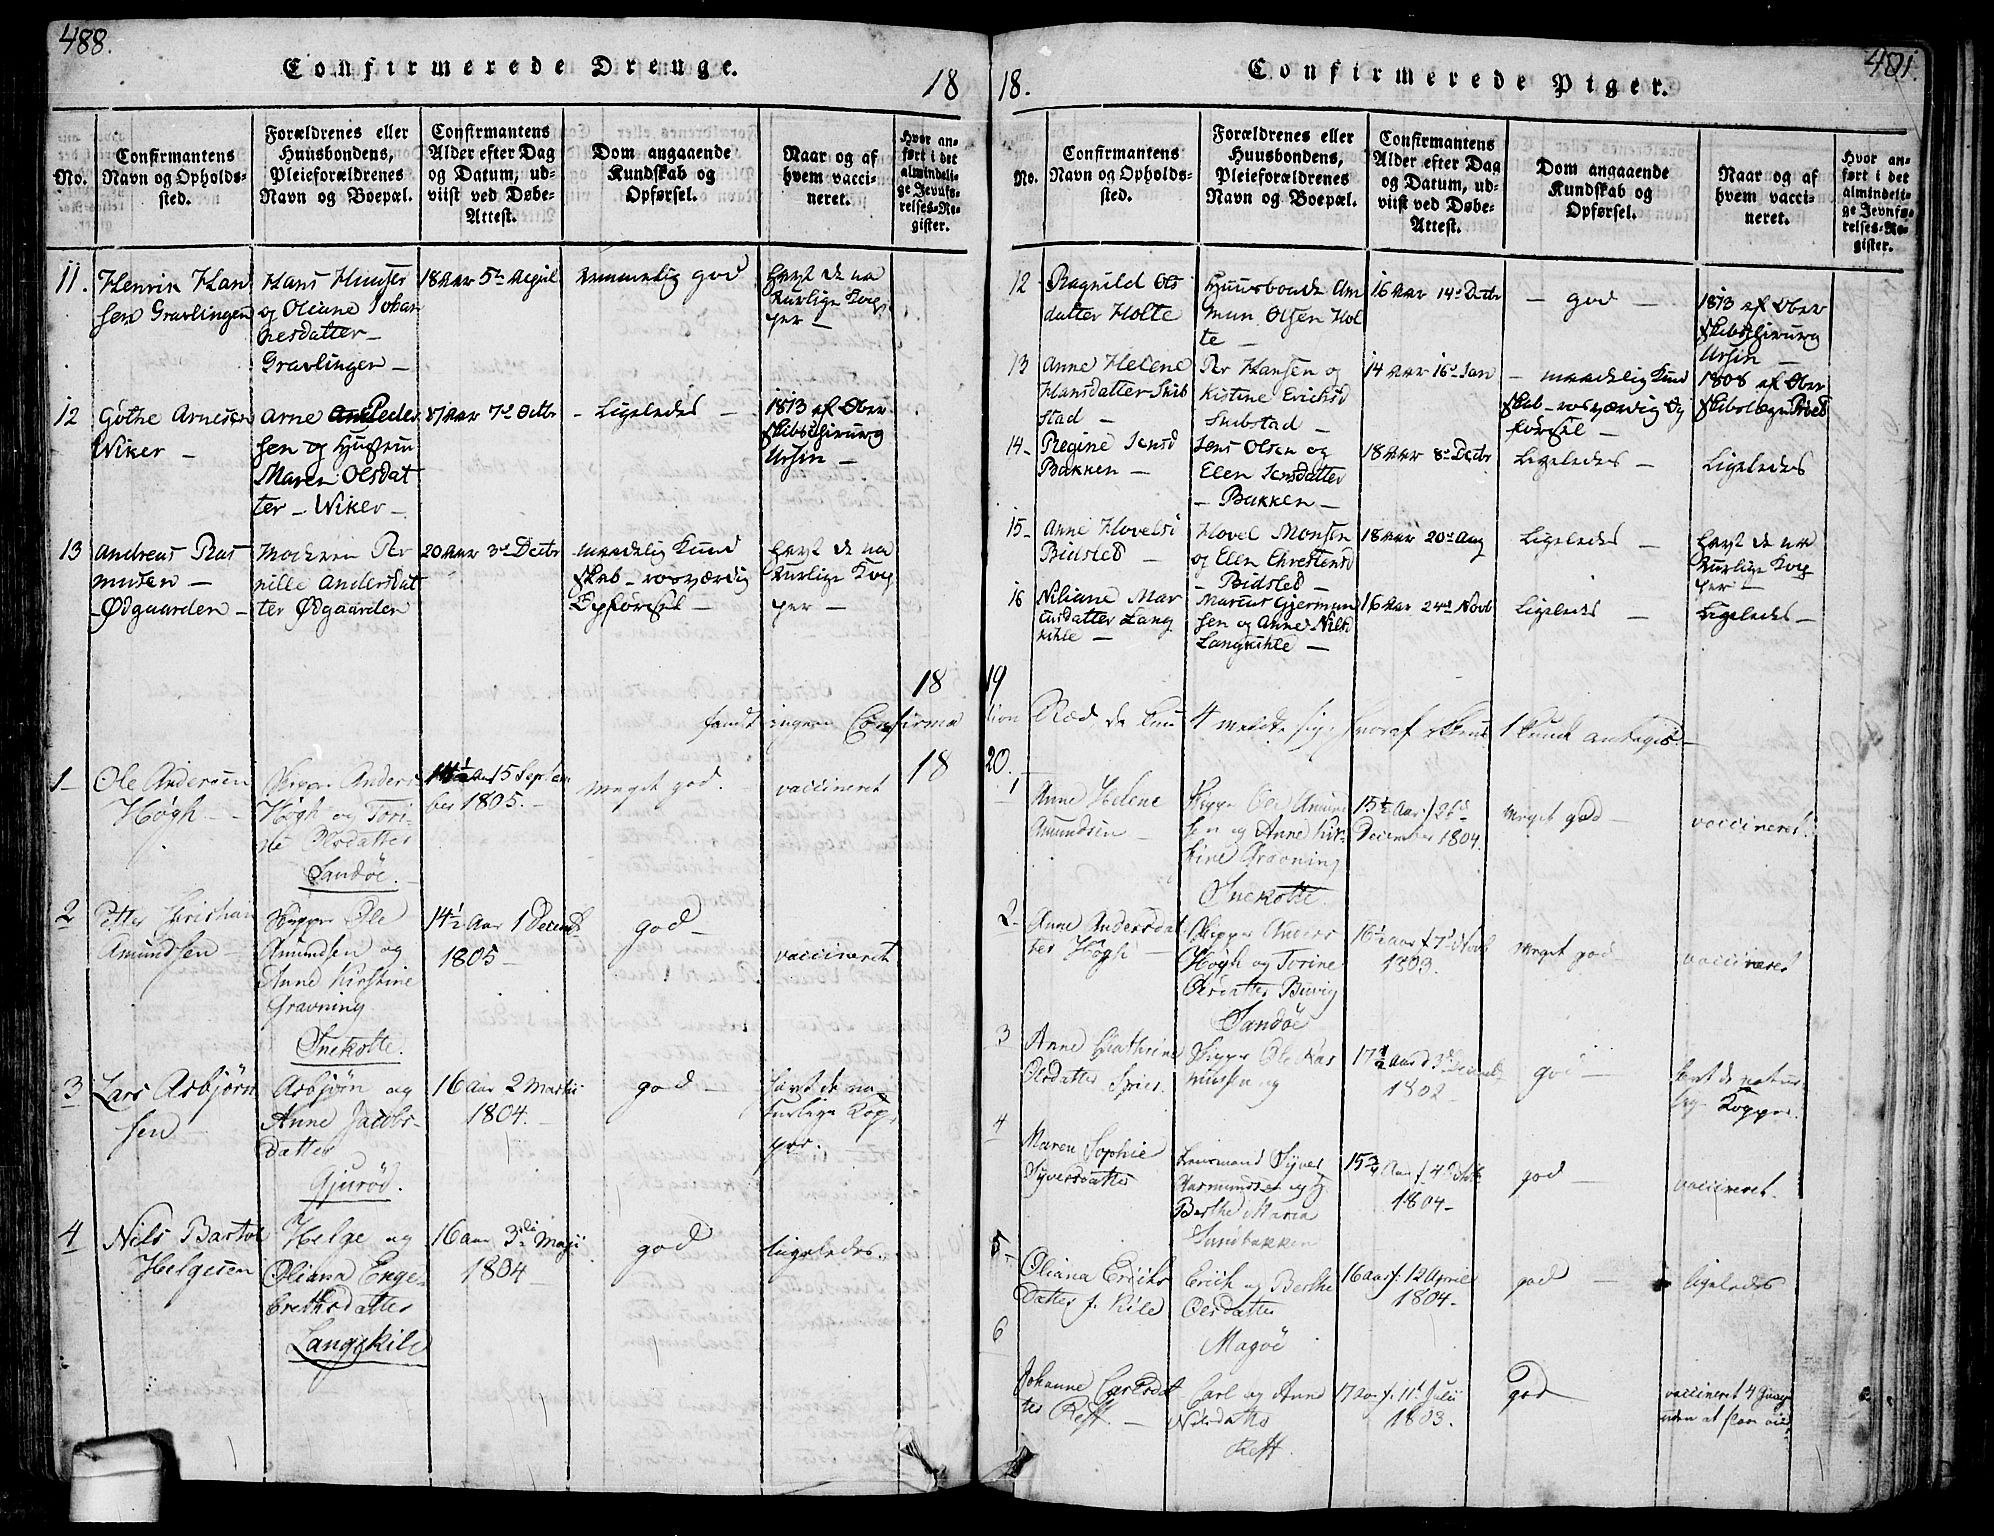 488.
Confirmerede Drenge.
18
No.
Confirmantens
Navn og Opholds-
sted.
Forældrenes eller
Huusbondens,
Pleieforældrenes
Navn og Boepæl.
Confirmantens
Alder efter Dag
og Datum, ud-
viist ved Døbe-
Attest.
Dom angaaende
Kundskab og
Opførsel.
Naar og af
hvem vacci-
neret.
Hvor an-
ført i det
almindeli-
ge Jevnfø-
relses-Re-
gister.
11.
Henrik Han
sen Gravlingen
Hans Hansen
og Oliane Johan
nesdatter –
Gravlingen –
18 aar 5te
god
havt de na
turlige Kop
per –
12
Gøthe Arnesen
Wiker –
Arne Peder
sen og Hustru
Maren Olsdat
ter – Wiker –
aar 7de Octbr
– Ligeledes –
1813 af Over
skibschirurg
Ursin –
13
Andreas Ras
musen –
– Ødgaarden –
Moderen Per
nille Andersdat
ter Ødgaarden
20 aar 3de Decbr
maadelig Kund
skab – rosværdig
Opførsel –
havt de na
turlige Kop
per –
1
Ole Andersen
Høgh –
Skipper Anders
Høgh og Tori-
ne Olsdatter
Sandøe.
15 Septem
ber 1805.
meget god.
vaccineret
2
Petter Christian
Amundsen –
Skipper Ole
Amundsen og
Anne Kirstine
Gravning
Snekotte.
14½ Aar 1 Decemb
1805 –
god –
vaccineret
3
Lars Asbjørn
sen
Asbjørn og
Anne Jacobs-
datter
Gjurød.
16 Aar 2 Martii
1804. –
god –
havt de na
turlige Kop
per.
4
Nils Bastol
Helgesen
Helge og
Oliana Enge
bretsdatter
Langekile
16 aar 3die Maji
1804 –
god
ligeledes.
18
fandt ingen Confirma
18
401.
Confirmerede Piger.
18.
No.
Confirmantens
Navn og Opholds-
sted.
Forældrenes eller
Huusbondens,
Pleieforældrenes
Navn og Boepæl.
Confirmantens
Alder efter Dag
og Datum, ud-
viist ved Døbe-
Attest.
Dom angaaende
Kundskab og
Opførsel.
Naar og af
hvem vacci-
neret.
Hvor an-
ført i det
almindeli-
ge Jevnfø-
relses-Re-
gister.
12
Ragnild Ols
datter Holte
Huusbonde Am
mun Olsen Hol
te –
16 aar 14de Decbr
– god –
1813 af Over
skibschirurg
Ursin –
13
Anne Helene
Hansdatter Skib
stad –
Per Hansen og
Kistine Ericksd
Skibstad –
14 aar 16de Jan
– maadelig Kund
skab – rosværdig Op
førsel –
1808 af Over
14 –
Regine Jensd
Bakken –
Jens Olsen og
Elen Jensdatter
– Bakken –
18 aar 8de Decbr
Ligeledes –
Ligeledes
15 –
Anne Hovelsd
Bidsled –
Hovel Monsen
og Elen Chrestensd
– Bidsled –
18 aar 20de Aug
Ligeledes –
havt de na
turlige Kop
per –
16
Niliane Mar
cusdatter Lang
kihle –
Marcus Gjermun
sen og Anne Nilsd
Langkihle –
16 aar 24de Novb
Ligeledes –
Ligeledes –
19
tion Sted, da kun 4 meldte sig, hvoraf ikkuns 1 kunde antages. –
20. –
1
Anne Helene
Amundsen –
Skipper Ole Amund
sen og Anne Kir-
stine Gravning
Snekotte
15½ Aar
December 1804.
meget god –
vaccineret.
2 –
Anne Andersdat
ter Høgh –
Skipper Anders
Høgh og Torine
Olsdatter Buvig
Sandøe
16½ aar f. 7d Novb
1803.
meget god
vaccineret
3
Anne Cathrine
Olsdatter
Skipper Ole Ras
mussen og
17½ Aar 3de Decemb
1802 –
god –
havt de natur
lige Kopper.
4
Maren Sophie
Syversdatter
Lensmand Syver
Rasmundsen og
Berthe Maria
Sundbakken
15¾ Aar f. 4de Octb
1804 –
god –
vaccineret.
5 –
Oliana Erichs
datter f. Kile
Erich og Berthe
Olsdatter
Magøe
16 aar f. 12 April
1804 –
god –
ligeledes
6
Johanne Carlsdat
ter Reff. –
Carl og Anne
Nilsdatter
Reff.
17 aar f. 11t Julii
1803.
god
vaccineret 4 Gange
uden at slaae an